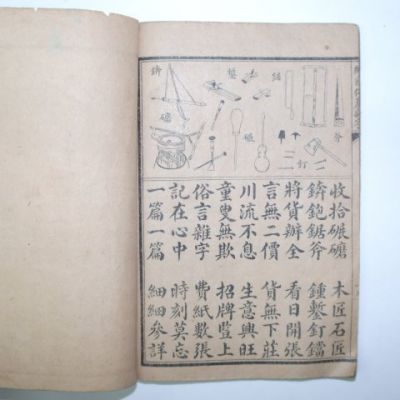 錛
鏨
鋸
斧
碾
磨
釘
收拾碾磨 木匠石匠
錛鉋鋸斧 鍾鏨釘鐺
將貨辦全 看日開張
言無二價 貨無下莊
川流不息 生意興旺
童叟無欺 招牌豎上
俗言雜字 費紙數張
記在心中 時刻莫忘
一篇一篇 細細參詳